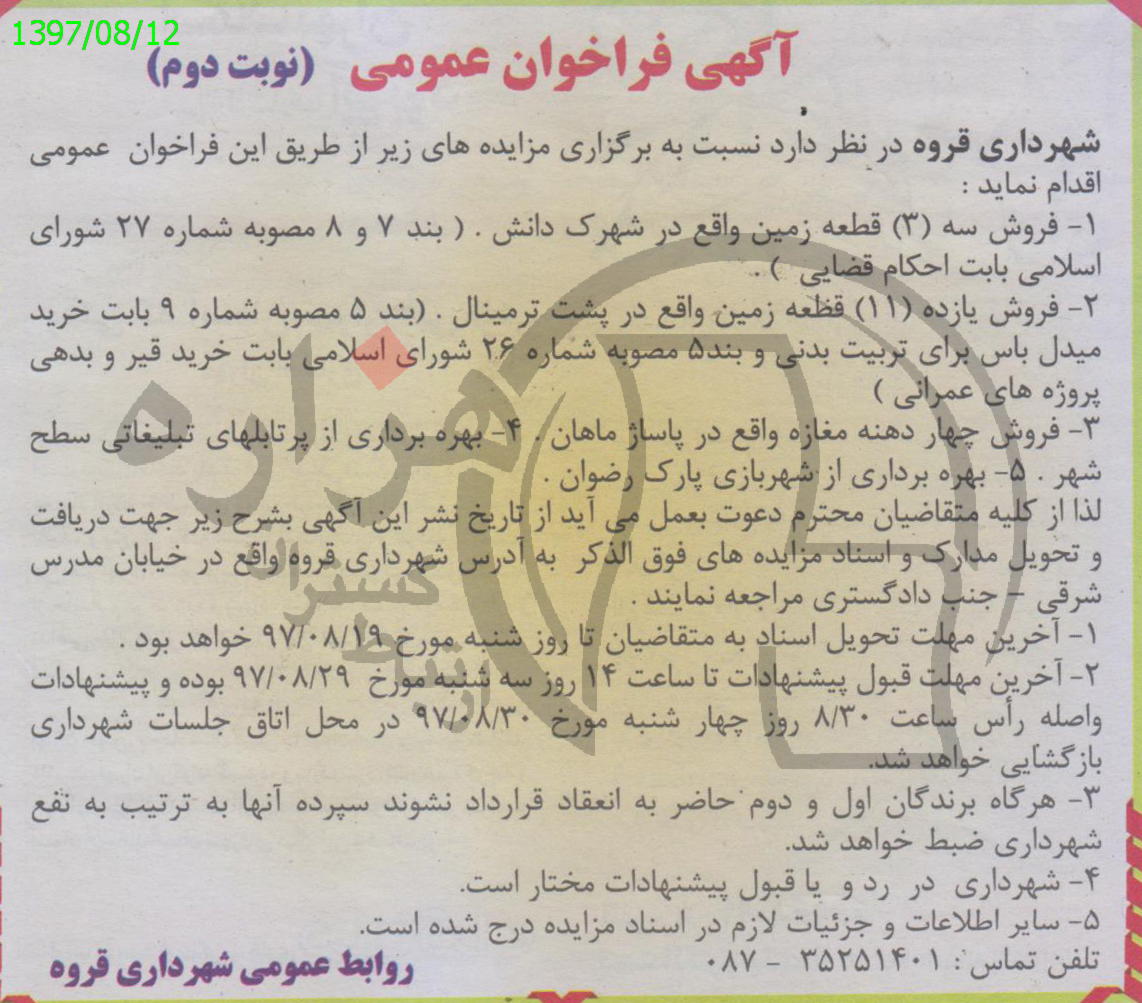 1397/08/12
آگهی فراخوان عمومی (نوبت دوم)
شهرداری قروه در نظر دارد نسبت به برگزاری مزایده های زیر از طریق این فراخوان عمومی
اقدام نماید :
۱- فروش سه (۳) قطعه زمین واقع در شهرک دانش . ( بند ۷ و ۸ مصوبه شماره ۲۷ شورای
اسلامی بابت احکام قضایی ) .
۲- فروش یازده (۱۱) قطعه زمین واقع در پشت ترمینال . (بند ۵ مصوبه شماره ۹ بابت خرید
میدل باس برای تربیت بدنی و بند۵ مصوبه شماره ۲۶ شورای اسلامی بابت خرید قیر و بدهی
پروژه های عمرانی )
۳- فروش چهار دهنه مغازه واقع در پاساژ ماهان . ۴- بهره برداری از پرتابلهای تبلیغاتی سطح
شهر . ۵- بهره برداری از شهربازی پارک رضوان .
لذا از کلیه متقاضیان محترم دعوت بعمل می آید از تاریخ نشر این آگهی بشرح زیر جهت دریافت
و تحویل مدارک و اسناد مزایده های فوق الذکر به آدرس شهرداری قروه واقع در خیابان مدرس
شرقی - جنب دادگستری مراجعه نمایند .
۱- آخرین مهلت تحویل اسناد به متقاضیان تا روز شنبه مورخ ۹۷/۰۸/۱۹ خواهد بود .
۲- آخرین مهلت قبول پیشنهادات تا ساعت ۱۴ روز سه شنبه مورخ ۹۷/۰۸/۲۹ بوده و پیشنهادات
واصله رأس ساعت ۸/۳۰ روز چهار شنبه مورخ ۹۷/۰۸/۳۰ در محل اتاق جلسات شهرداری
بازگشایی خواهد شد.
۳- هرگاه برندگان اول و دوم حاضر به انعقاد قرارداد نشوند سپرده آنها به ترتیب به نفع
شهرداری ضبط خواهد شد.
۴- شهرداری در رد و یا قبول پیشنهادات مختار است.
۵- سایر اطلاعات و جزئیات لازم در اسناد مزایده درج شده است.
تلفن تماس : ۳۵۲۵۱۴۰۱ - ۰۸۷
روابط عمومی شهرداری قروه
هزاره
گسترش
ارتباط